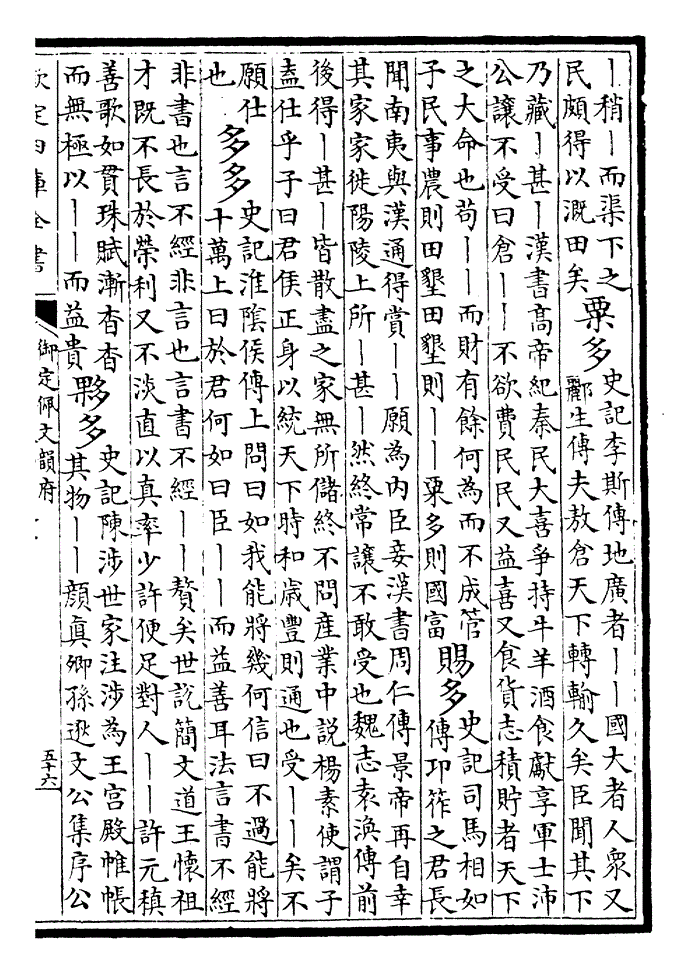 丨稍丨而渠下之
民頗得以溉田矣
粟多
史記李斯傳地廣者丨丨國大者人衆又
酈生傳夫敖倉天下轉輸久矣臣聞其下
乃藏丨甚丨漢書髙帝紀秦民大喜爭持牛羊酒食獻享軍士沛
公讓不受曰倉丨丨不欲費民民又益喜又食貨志積貯者天下
之大命也苟丨丨而財有餘何為而不成管
子民事農則田墾田墾則丨丨粟多則國富
賜多
史記司馬相如
傳卭筰之君長
聞南夷與漢通得賞丨丨願為内臣妾漢書周仁傳景帝再自幸
其家家徙陽陵上所丨甚丨然終常讓不敢受也魏志袁渙傳前
後得丨甚丨皆散盡之家無所儲終不問産業中説楊素使謂子
盍仕乎子曰君侯正身以統天下時和歳豐則通也受丨丨矣不
願仕
也
多多
史記淮隂侯傳上問曰如我能將幾何信曰不過能將
十萬上曰於君何如曰臣丨丨而益善耳法言書不經
非書也言不經非言也言書不經丨丨贅矣世説簡文道王懷祖
才既不長於榮利又不淡直以真率少許便足對人丨丨許元稹
善歌如貫珠賦漸杳杳
而無極以丨丨而益貴
夥多
史記陳涉世家注涉為王宫殿帷帳
其物丨丨顔真卿孫逖文公集序公
欽定四庫全書
御定佩文韻府
五十六